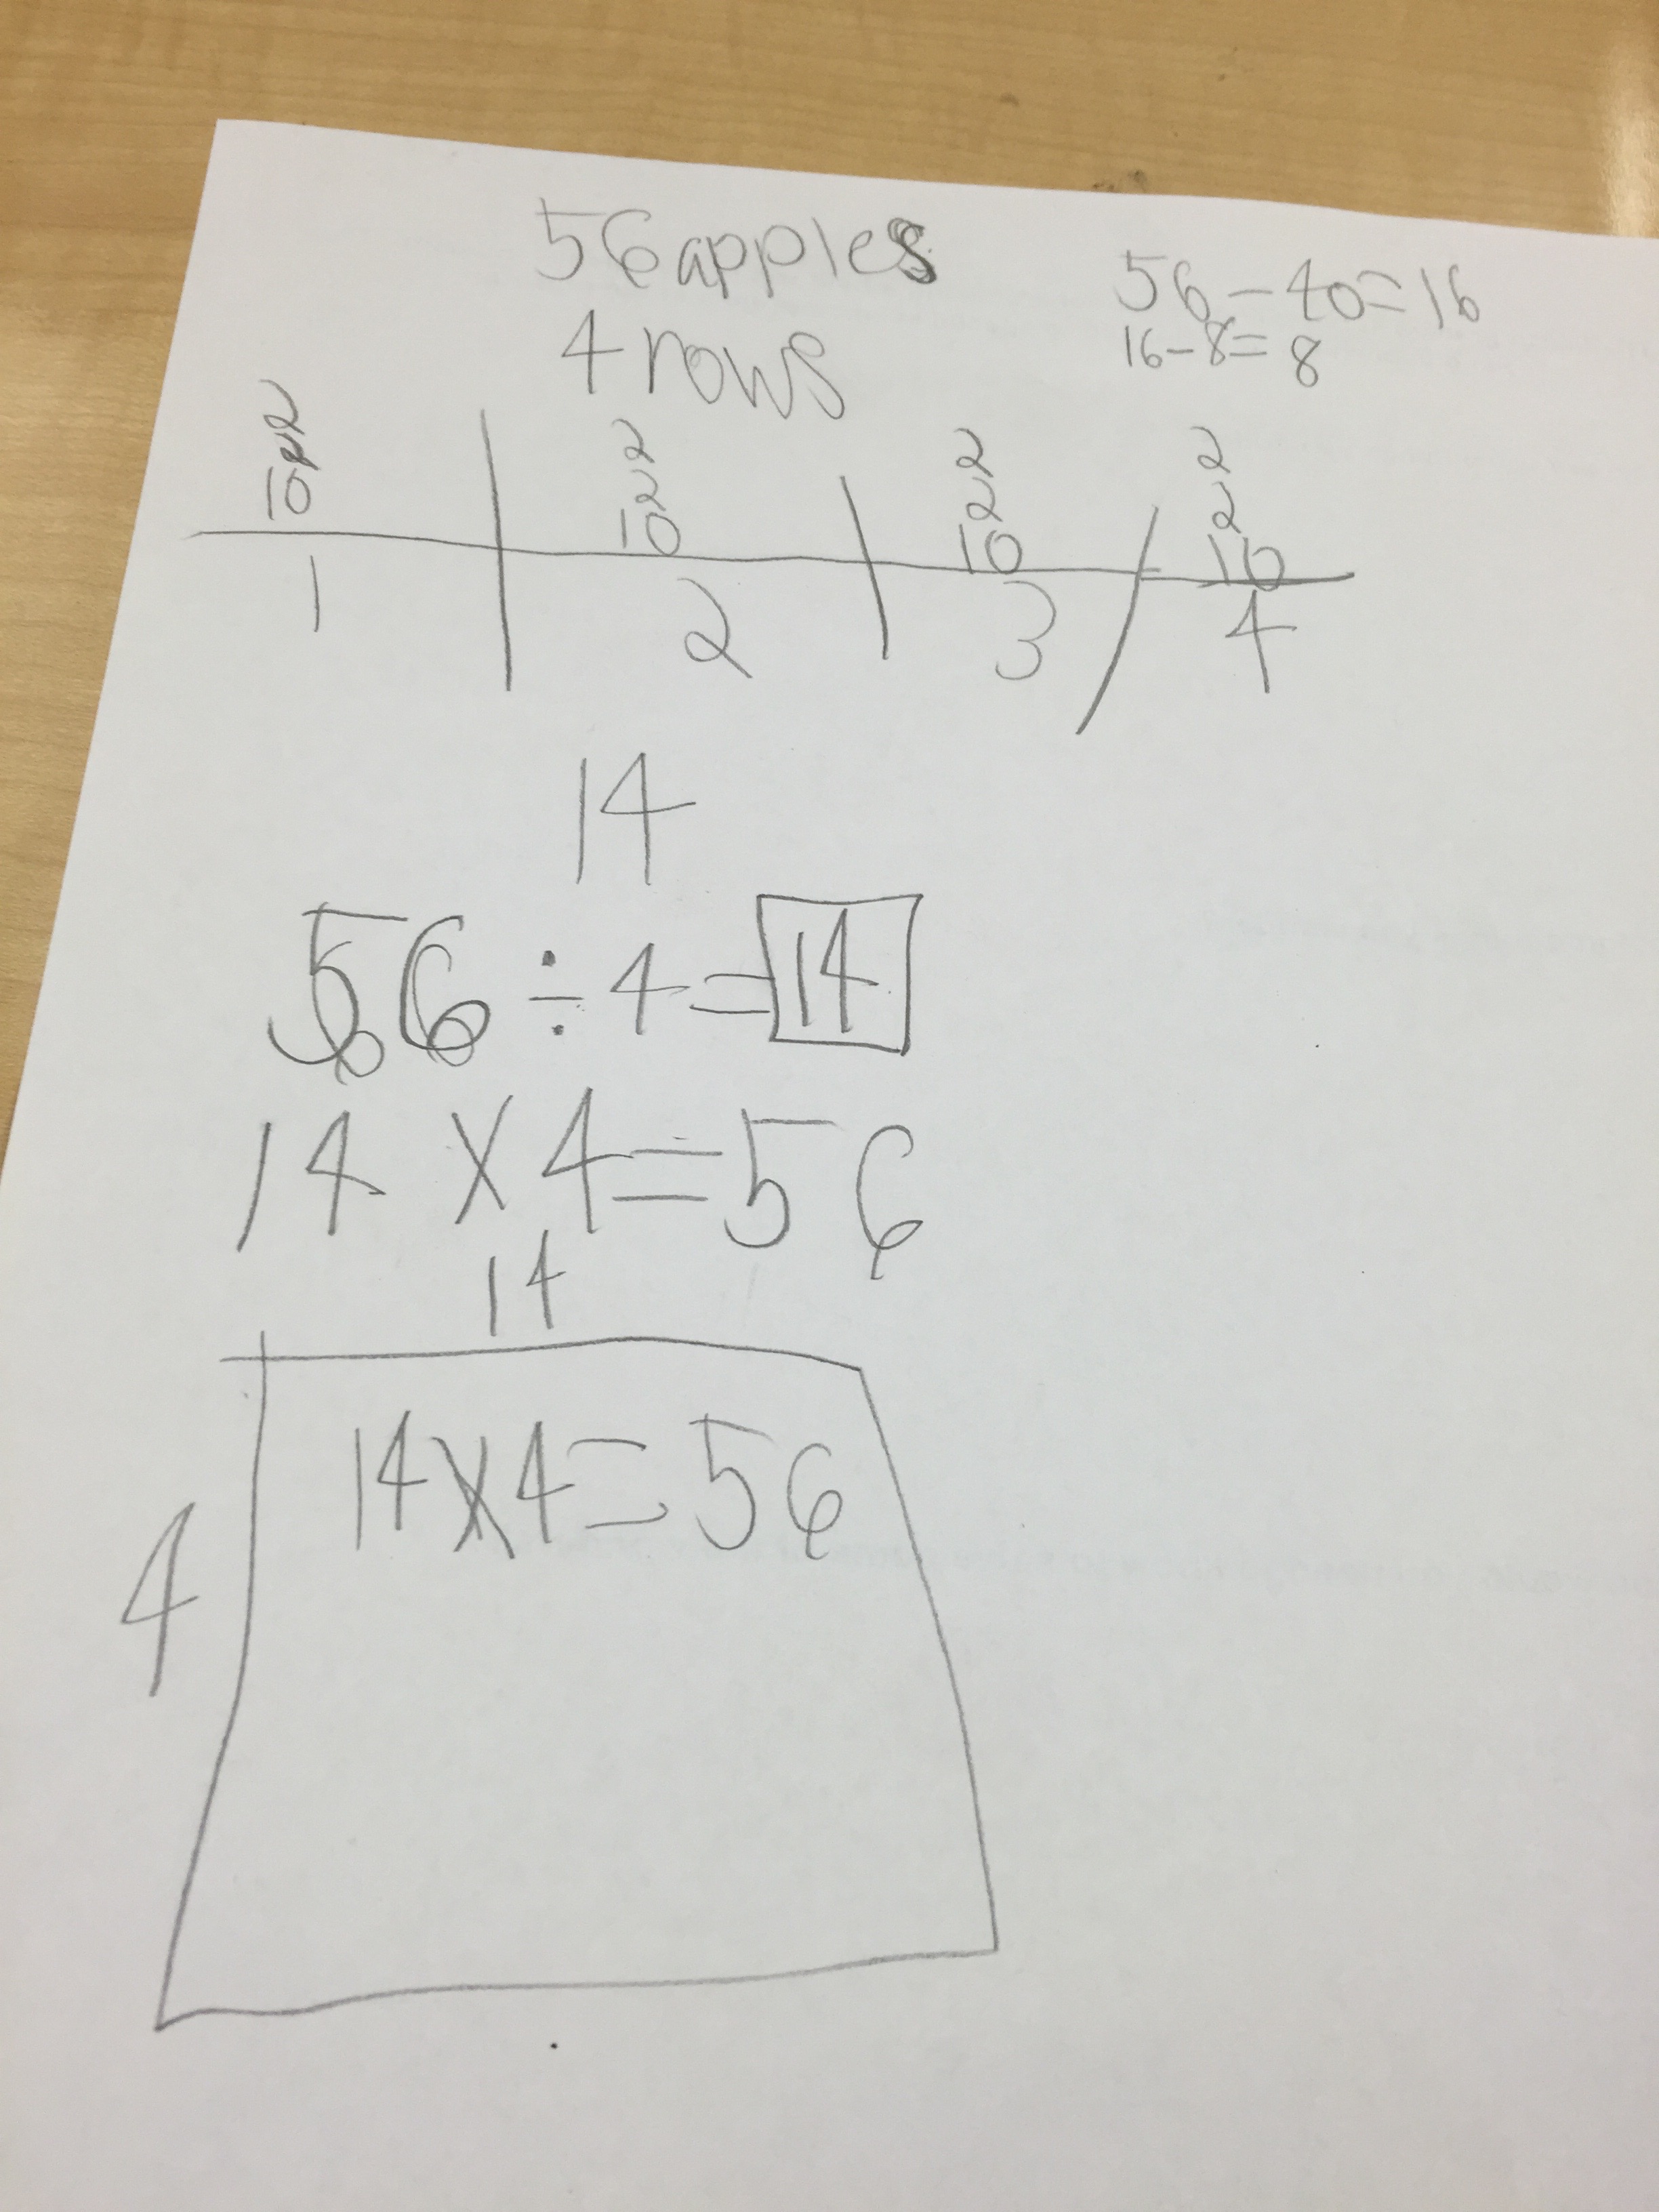 56 apples
4 rows
56 - 40 = 16
16 - 8 = 8
2 2 2 2
2 2 2 2
10 10 10 10
1 2 3 4
14
56 ÷ 4 = 14
14 x 4 = 56
14
14 x 4 = 56
4